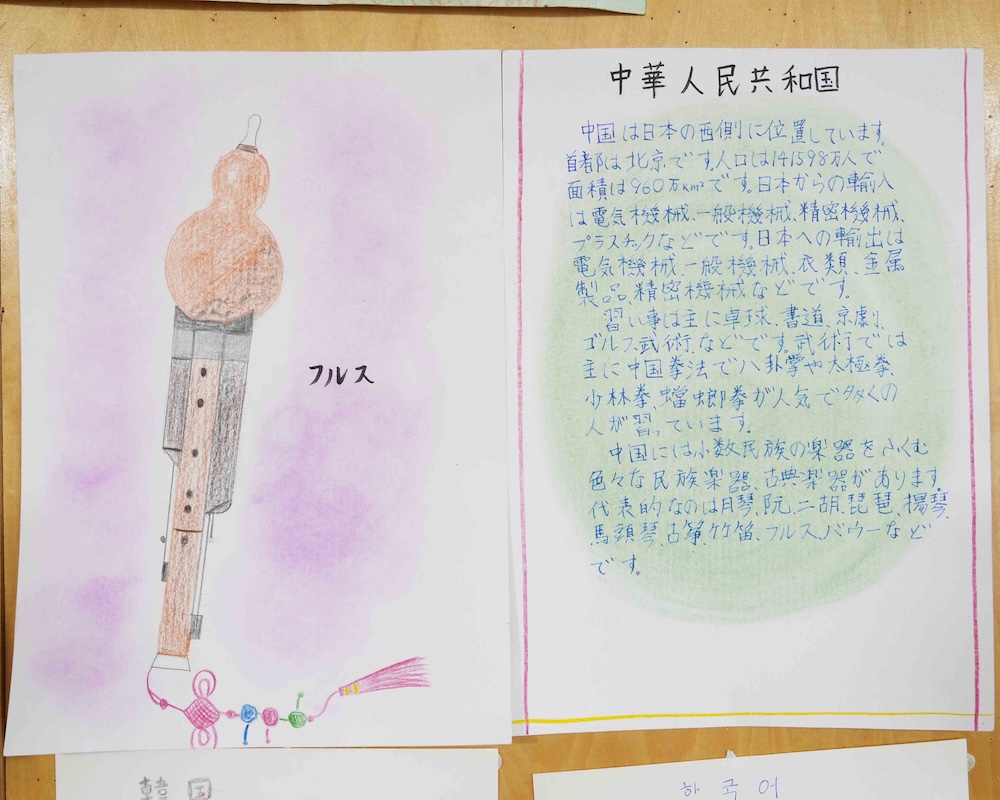 フルス
中華人民共和国
中国は日本の西側に位置しています。
首都は北京です。人口は141598万人で
面積は960万km²です。日本からの輸入
は電気機械、一般機械、精密機械、
プラスチックなどです。日本への輸出は
電気機械、一般機械、衣類、金属
製品、精密機械などです。
習い事は主に卓球、書道、京劇、
ゴルフ、武術、などです。武術では
主に中国拳法で八卦掌や太極拳、
少林拳、蟷螂拳が人気で多くの
人が習っています。
中国には小数民族の楽器をふくむ
色々な民族楽器、古典楽器があります。
代表的なのは月琴、阮、二胡、琵琶、揚琴、
馬頭琴、古箏、竹笛、フルス、バウーなど
です。
韓国
한국어